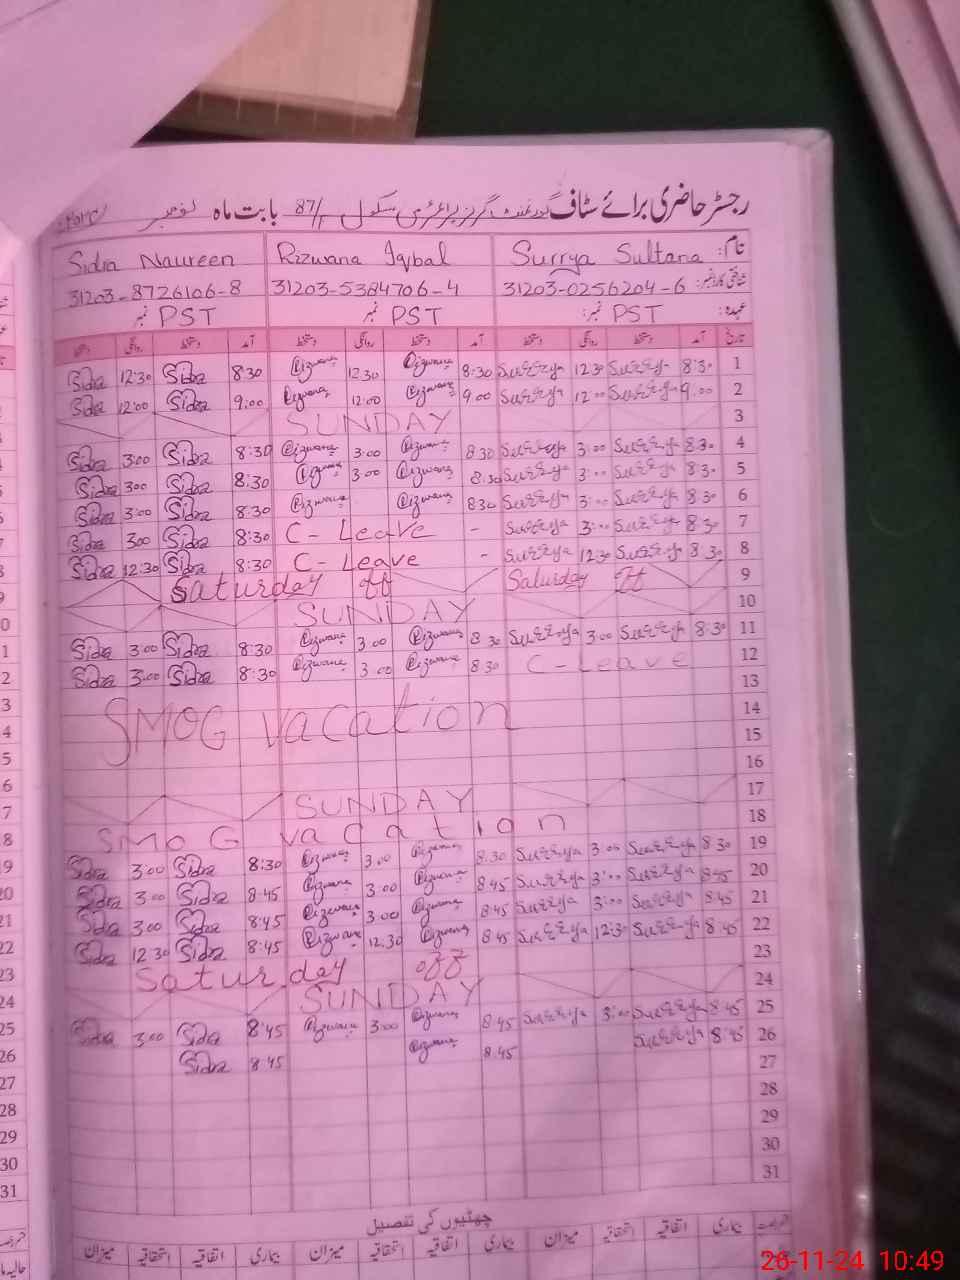 رجسٹر حاضری برائے سٹاف گورنمنٹ گرلز پرائمری سکول 87/ بابت ماہ نومبر
نام: Surrya Sultana Rizwana Iqbal Sidra Naureen
31203-0256204-6 31203-5384706-4 31203-8726106-8
عہدہ: PST نمبر PST نمبر PST
تاریخ آمد دستخط روانگی دستخط آمد دستخط روانگی دستخط آمد دستخط روانگی دستخط
Sidra 12:30 Sidra 8:30 Rizwana 12.30 Rizwana 8:30 Surrya 12:30 Surrya 8:30 1
Sidra 12:00 Sidra 9:00 Rizwana 12:00 Rizwana 9.00 Surrya 12:00 Surrya 9:00 2
SUNDAY 3
Sidra 3:00 Sidra 8:30 Rizwana 3:00 Rizwana 8.30 Surrya 3:00 Surrya 8:30 4
Sidra 3:00 Sidra 8:30 Rizwana 3:00 Rizwana 8:30 Surrya 3:00 Surrya 8:30 5
Sidra 3:00 Sidra 8:30 Rizwana Rizwana 8:30 Surrya 3:00 Surrya 8:30 6
Sidra 3:00 Sidra 8:30 C-Leave - Surrya 3:00 Surrya 8:30 7
Sidra 12:30 Sidra 8:30 C-Leave - Surrya 12:30 Surrya 8:30 8
Saturday off Saturday off 9
SUNDAY 10
Sidra 3:00 Sidra 8:30 Rizwana 3.00 Rizwana 8:30 Surrya 3:00 Surrya 8:30 11
Sidra 3:00 Sidra 8:30 Rizwana 3.00 Rizwana 8:30 C-Leave 12
13
SMOG vacation 14
15
16
SUNDAY 17
SMOG vacation 18
Sidra 3:00 Sidra 8:30 Rizwana 3.00 Rizwana 8.30 Surrya 3:00 Surrya 8:30 19
Sidra 3:00 Sidra 8:45 Rizwana 3:00 Rizwana 8:45 Surrya 3:00 Surrya 8:45 20
Sidra 3:00 Sidra 8:45 Rizwana 3:00 Rizwana 8:45 Surrya 3:00 Surrya 8:45 21
Sidra 12:30 Sidra 8:45 Rizwana 12.30 Rizwana 8:45 Surrya 12:30 Surrya 8:45 22
Saturday off 23
SUNDAY 24
Sidra 3:00 Sidra 8:45 Rizwana 3:00 Rizwana 8:45 Surrya 3:00 Surrya 8:45 25
Sidra 8:45 Rizwana 8:45 Surrya 8:45 26
27
28
29
30
31
چھٹیوں کی تفصیل
بیماری اتفاقیہ استحقاقیہ میزان بیماری اتفاقیہ استحقاقیہ میزان بیماری اتفاقیہ استحقاقیہ میزان
26-11-24 10:49